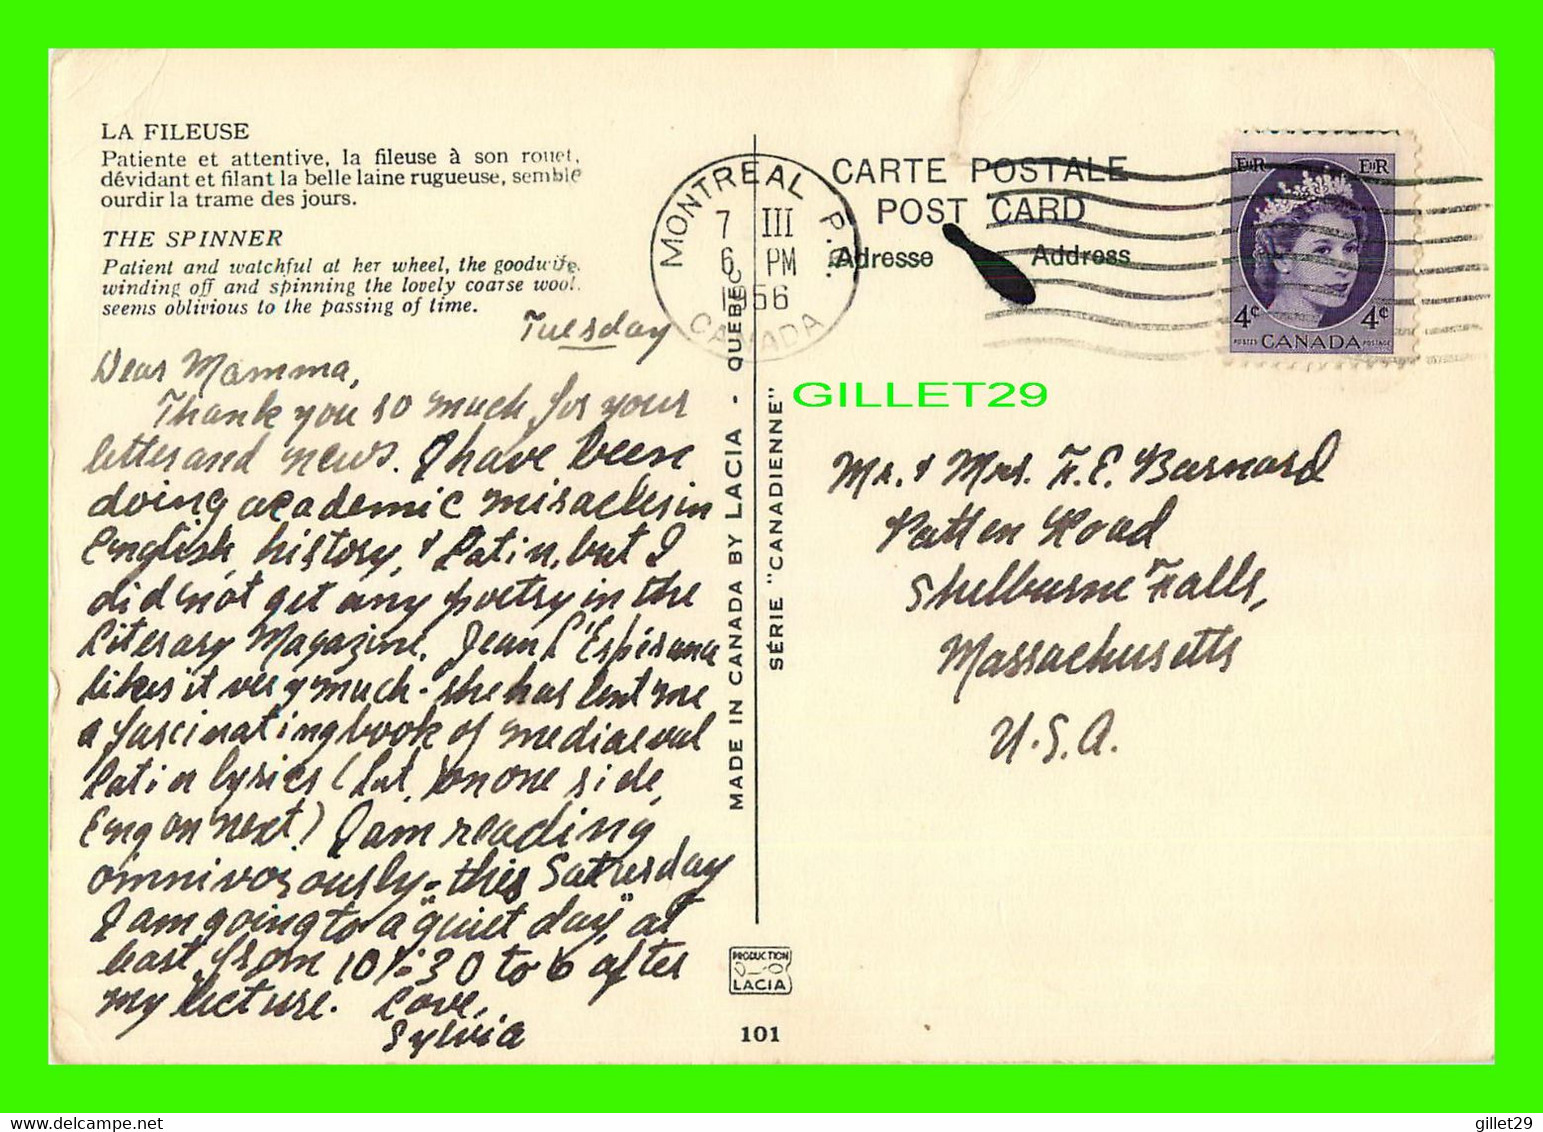 LA FILEUSE
Patiente et attentive, la fileuse à son rouet,
dévidant et filant la belle laine rugueuse, semble
ourdir la trame des jours.
THE SPINNER
Patient and watchful at her wheel, the goodwife,
winding off and spinning the lovely coarse wool,
seems oblivious to the passing of time.
Tuesday
Dear Mamma,
Thank you so much for your
letter and news. I have been
doing academic miracles in
English, history, & Latin, but I
did not get any poetry in the
Literary Magazine. Jean L'Espérance
likes it very much - she has lent me
a fascinating book of mediaeval
Latin lyrics (Lat. on one side,
Eng on next) I am reading
omnivorously - this Saturday
I am going to a "quiet day", at
least from 10:30 to 6 after
my lecture. Love,
Sylvia
MADE IN CANADA BY LACIA - QUEBEC
SÉRIE "CANADIENNE"
PRODUCTION
LACIA
101
MONTREAL P.Q.
7 III
6 PM
1956
CANADA
CARTE POSTALE
POST CARD
Adresse Address
EIIR EIIR
4¢ 4¢
POSTES CANADA POSTAGE
GILLET29
Mr. & Mrs. F. E. Barnard
Patten Road
Shelburne Falls,
Massachusetts
U.S.A.
gillet29